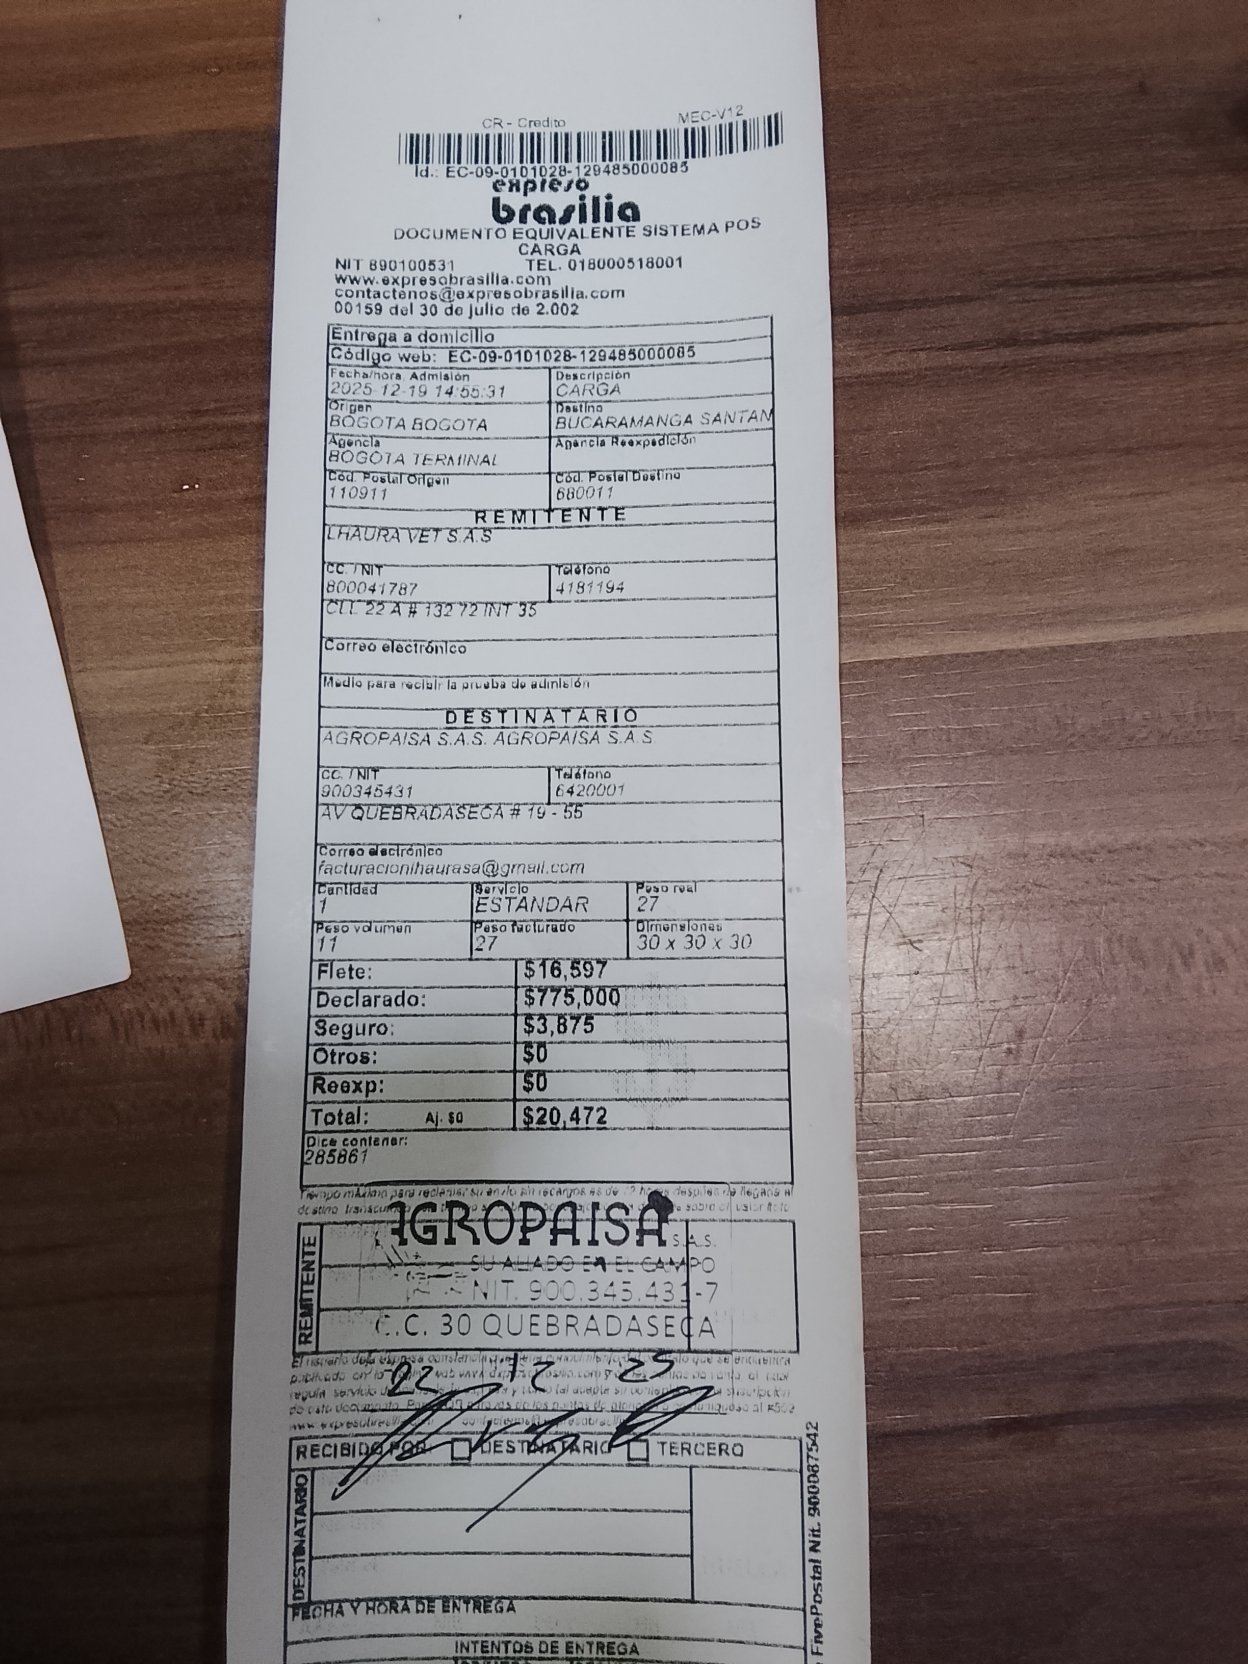 CR - Credito MEC-V12
Id.: EC-09-0101028-129485000085
expreso
brasilia
DOCUMENTO EQUIVALENTE SISTEMA POS
CARGA
NIT 890100531 TEL. 018000518001
www.expresobrasilia.com
contactenos@expresobrasilia.com
00159 del 30 de julio de 2.002
Entrega a domicilio
Código web: EC-09-0101028-129485000085
Fecha/hora Admisión Descripción
2025-12-19 14:55:31 CARGA
Origen Destino
BOGOTA BOGOTA BUCARAMANGA SANTAN
Agencia Agencia Reexpedición
BOGOTA TERMINAL
Cód. Postal Origen Cód. Postal Destino
110911 680011
REMITENTE
LHAURA VET S.A.S
CC. / NIT Teléfono
800041787 4181194
CLL 22 A # 132 72 INT 35
Correo electrónico
Medio para recibir la prueba de admisión
DESTINATARIO
AGROPAISA S.A.S. AGROPAISA S.A.S
CC. / NIT Teléfono
900345431 6420001
AV QUEBRADASECA # 19 - 55
Correo electrónico
facturacionlhaurasa@gmail.com
Cantidad Servicio Peso real
1 ESTANDAR 27
Peso volumen Peso facturado Dimensiones
11 27 30 x 30 x 30
Flete: $16,597
Declarado: $775,000
Seguro: $3,875
Otros: $0
Reexp: $0
Total: Aj. $0 $20,472
Dice contener:
285861
Tiempo máximo para reclamar su envío sin recargos es de 72 horas después de llegada al
destino
REMITENTE
AGROPAISA S.A.S.
SU ALIADO EN EL CAMPO
NIT. 900.345.431-7
C.C. 30 QUEBRADASECA
22 12 25
RECIBIDO POR: DESTINATARIO TERCERO
DESTINATARIO
FECHA Y HORA DE ENTREGA
INTENTOS DE ENTREGA
FivePostal Nit. 900087542